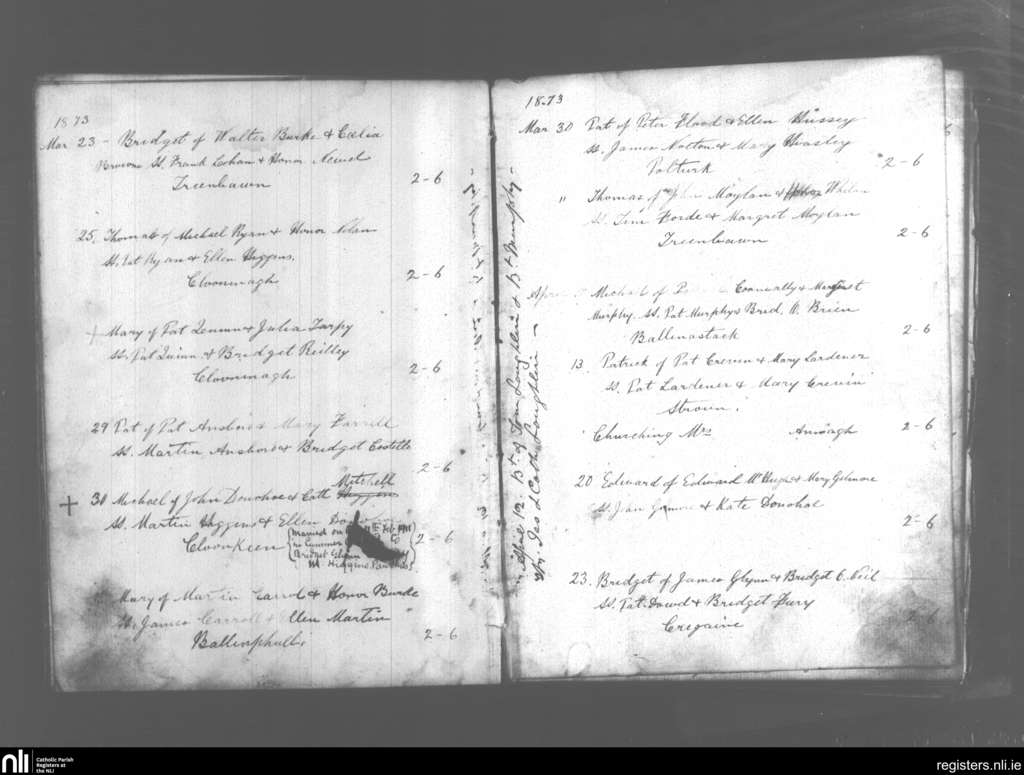 1873
Mar 23 - Bridget of Walter Burke & Celia
Browne Ss. Frank Lohan & Honor Newel
Treenbawn
2-6
25. Thomas of Michael Ryan & Honor Nolan
Ss. Pat Ryan & Ellen Higgins.
Cloonmagh
2-6
Mary of Pat & Julia Tarpy
Ss. Pat Quinn & Bridget Reilley
Cloonmagh
2-6
29 Pat of Pat & Mary Farrell
Ss. Martin & Bridget Costello
2-6
Mitchell
+ 30 Michael of John Donohoe & Cath Higgins
Ss. Martin Higgins & Ellen
Cloonkeen
Married on Feb 1911
in Cummer Co
Bridget Glynn
M. Higgins
2-6
Mary of Martin Carrol & Honor Burke
Ss. James Carroll & Ellen Martin
2-6
April 12. Bt of Tom Loughlin & Bt Murphy -
1873
Mar 30 Pat of Peter Flood & Ellen Hussey
Ss. James Norton & Mary
Polturk
2-6
" Thomas of John Moylan & Whelan
Ss. Tim Forde & Margret Moylan
Treenbawn
2-6
Michael of Connally & Margret
Murphy. Ss. Pat Murphy & Brid. O. Brien
Ballinastack
2-6
13. Patrick of Pat Creven & Mary Lardener
Ss. Pat Lardener & Mary Crevin
Churching Mrs
2-6
20 Edward of Edward McHugh & Mary Gilmore
Ss. & Kate Donohoe
2-6
23. Bridget of James Glynn & Bridget
Ss. Pat Dowd & Bridget Fury
Cregaine
2-6
nli
Catholic Parish
Registers at
the NLI
registers.nli.ie